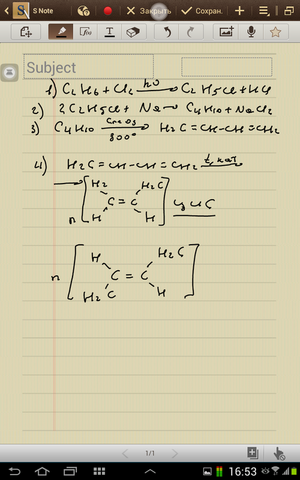 S Note
Закрыть
Сохран.
Subject
1) C2H6 + Cl2 hν C2H5Cl + HCl
2) 2C2H5Cl + Na C4H10 + NaCl2
3) C4H10 Cr2O3 800° H2C = CH-CH = CH2
4) H2C = CH-CH = CH2 t, кат
H2 H2C
C = C цис
n H H
H H2C
n C = C
H2C H
1/1
16:53